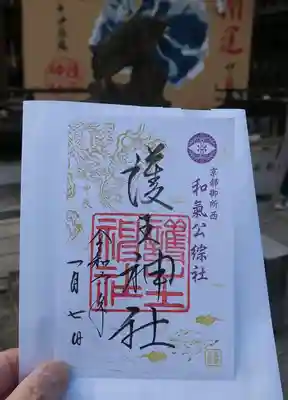 開運
京都御所西
和氣公綜社
護王神社
護王
神社
令和六年
一月七日